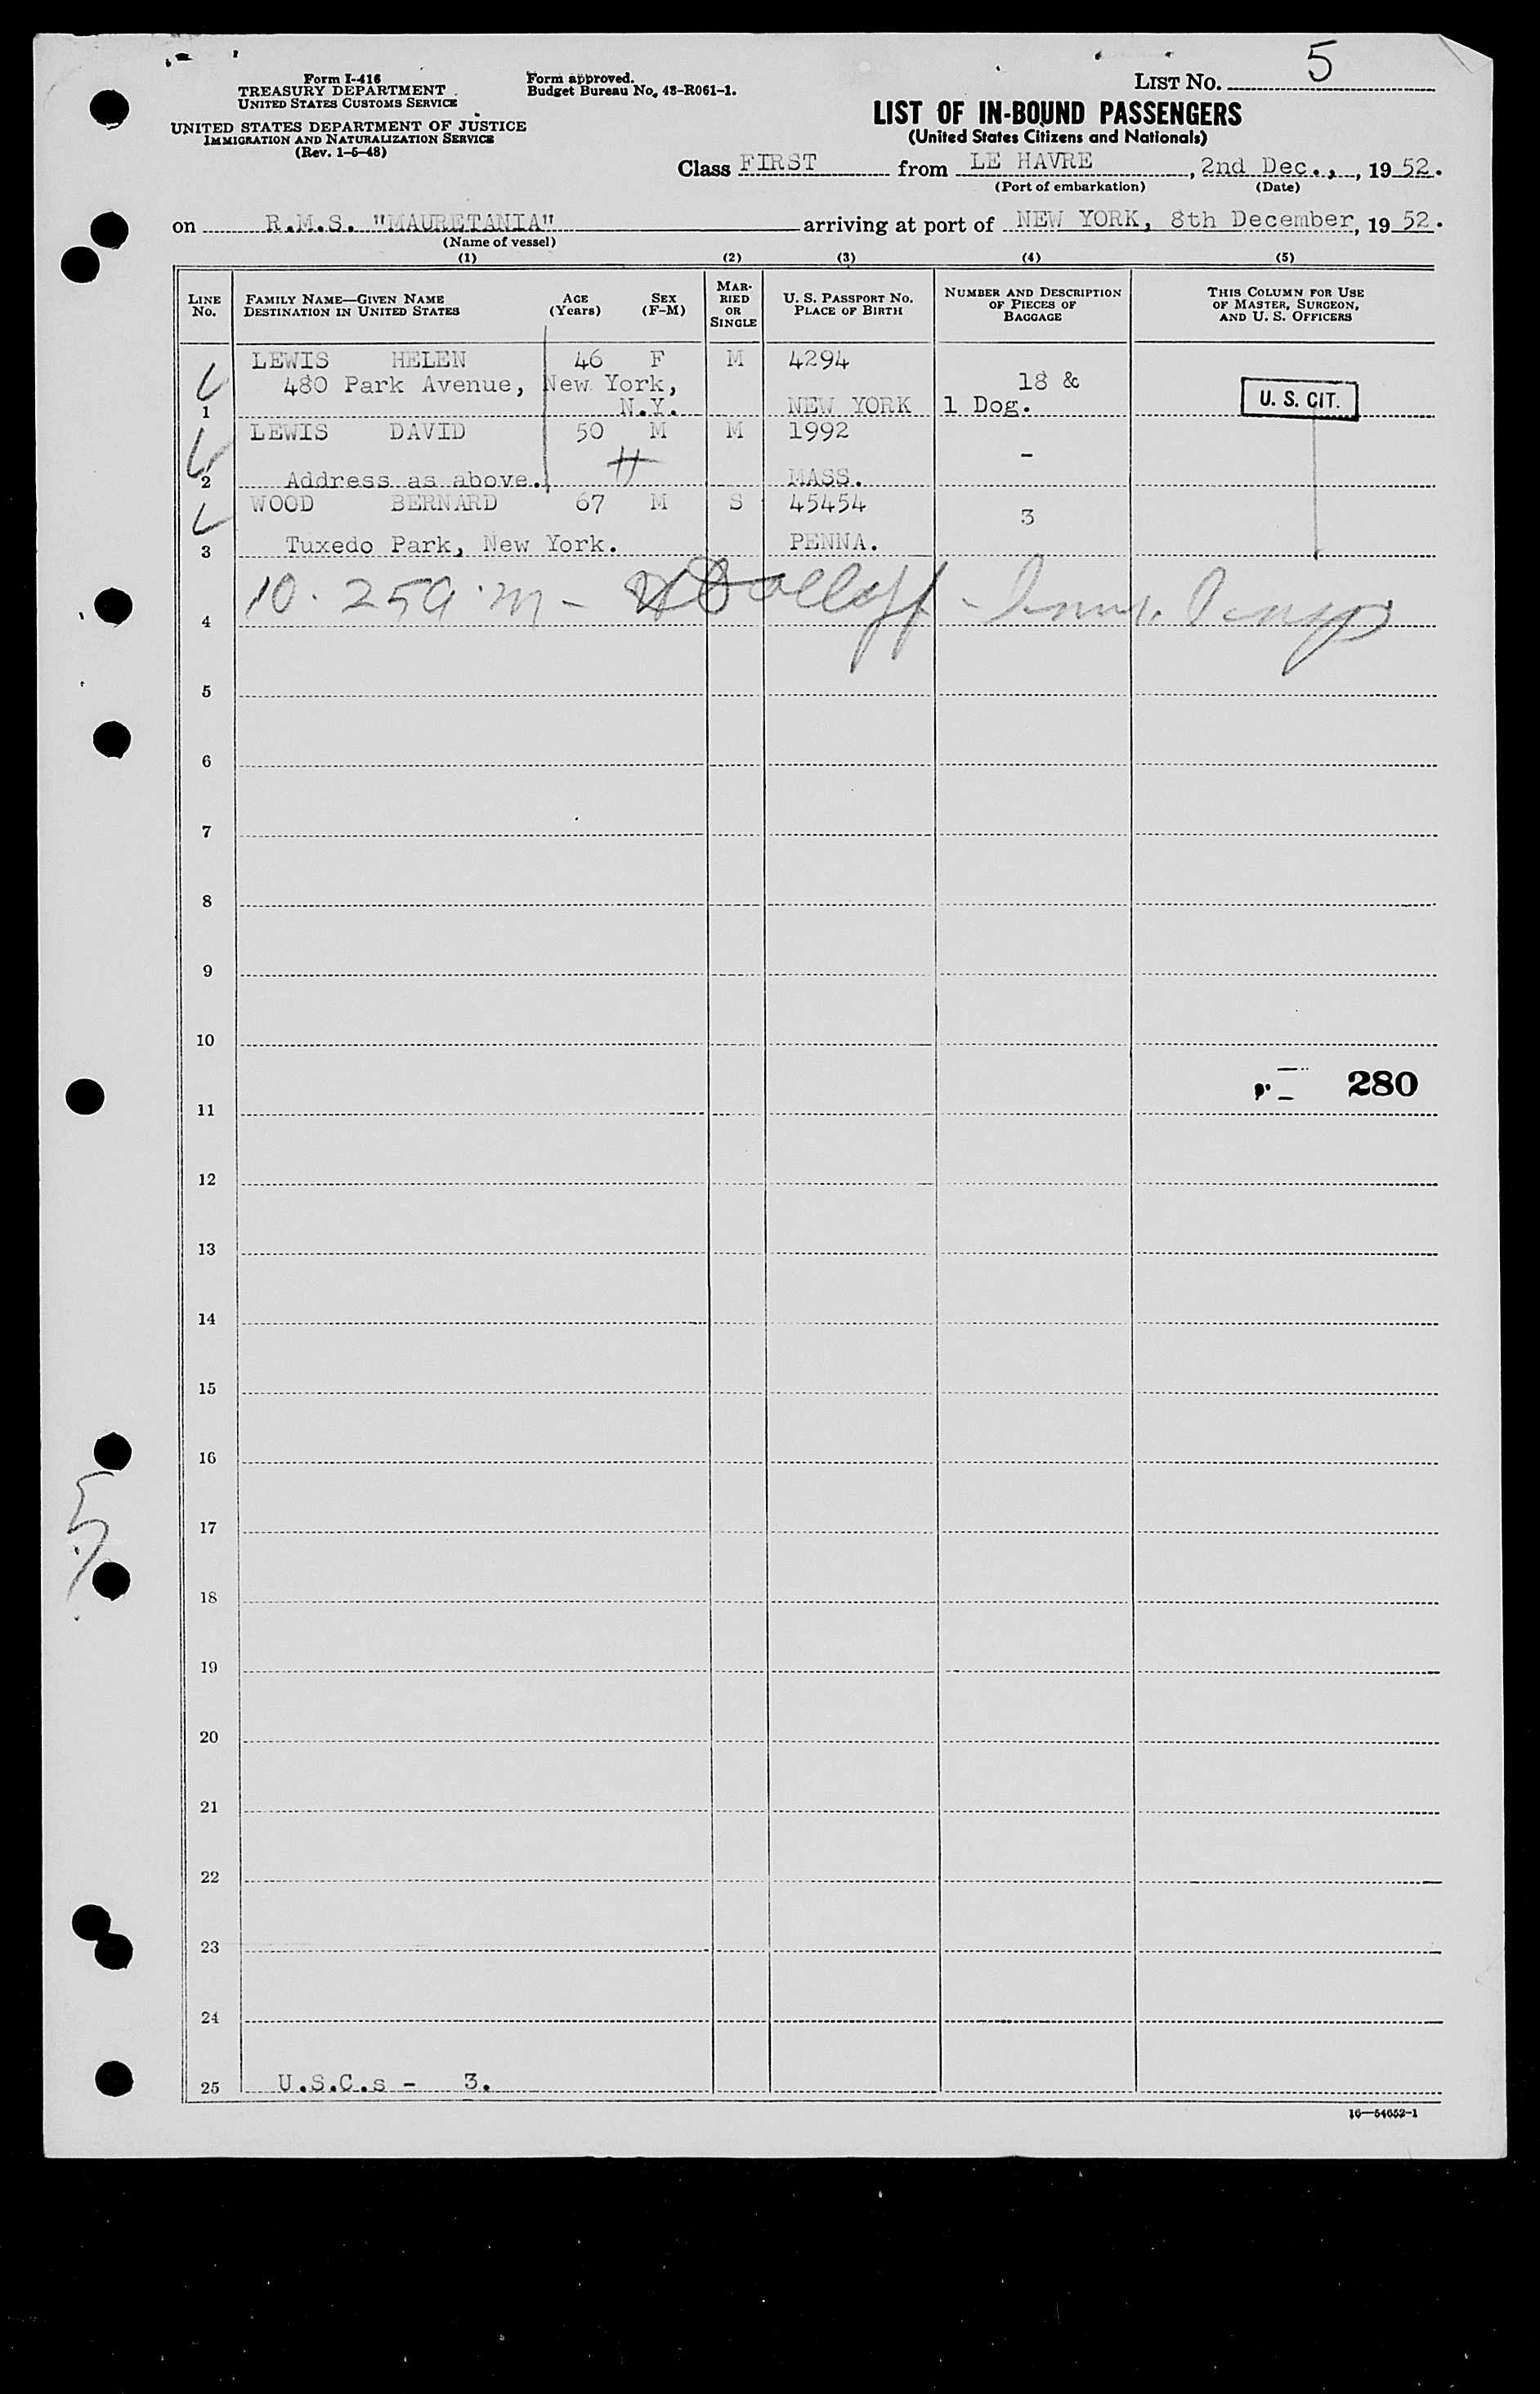 Form I-416
TREASURY DEPARTMENT
UNITED STATES CUSTOMS SERVICE
UNITED STATES DEPARTMENT OF JUSTICE
IMMIGRATION AND NATURALIZATION SERVICE
(Rev. 1-5-48)
Form approved.
Budget Bureau No. 43-R061-1.
LIST NO. 5
LIST OF IN-BOUND PASSENGERS
(United States Citizens and Nationals)
Class FIRST from LE HAVRE, 2nd Dec., 1952.
(Port of embarkation) (Date)
on R.M.S. "MAURETANIA" arriving at port of NEW YORK, 8th December, 1952.
(Name of vessel)
(1) (2) (3) (4) (5)
LINE No. FAMILY NAME—GIVEN NAME DESTINATION IN UNITED STATES AGE (Years) SEX (F-M) MARRIED OR SINGLE U. S. PASSPORT NO. PLACE OF BIRTH NUMBER AND DESCRIPTION OF PIECES OF BAGGAGE THIS COLUMN FOR USE OF MASTER, SURGEON, AND U. S. OFFICERS
LEWIS HELEN 46 F M 4294
480 Park Avenue, New York, 18 &
1 N.Y. NEW YORK 1 Dog. U. S. CIT.
LEWIS DAVID 50 M M 1992
-
2 Address as above. MASS.
WOOD BERNARD 67 M S 45454
3
3 Tuxedo Park, New York. PENNA.
4 10.25 a.m -
5
6
7
8
9
10
280
11
12
13
14
15
16
5
17
18
19
20
21
22
23
24
25 U.S.C.s - 3.
16—54652-1